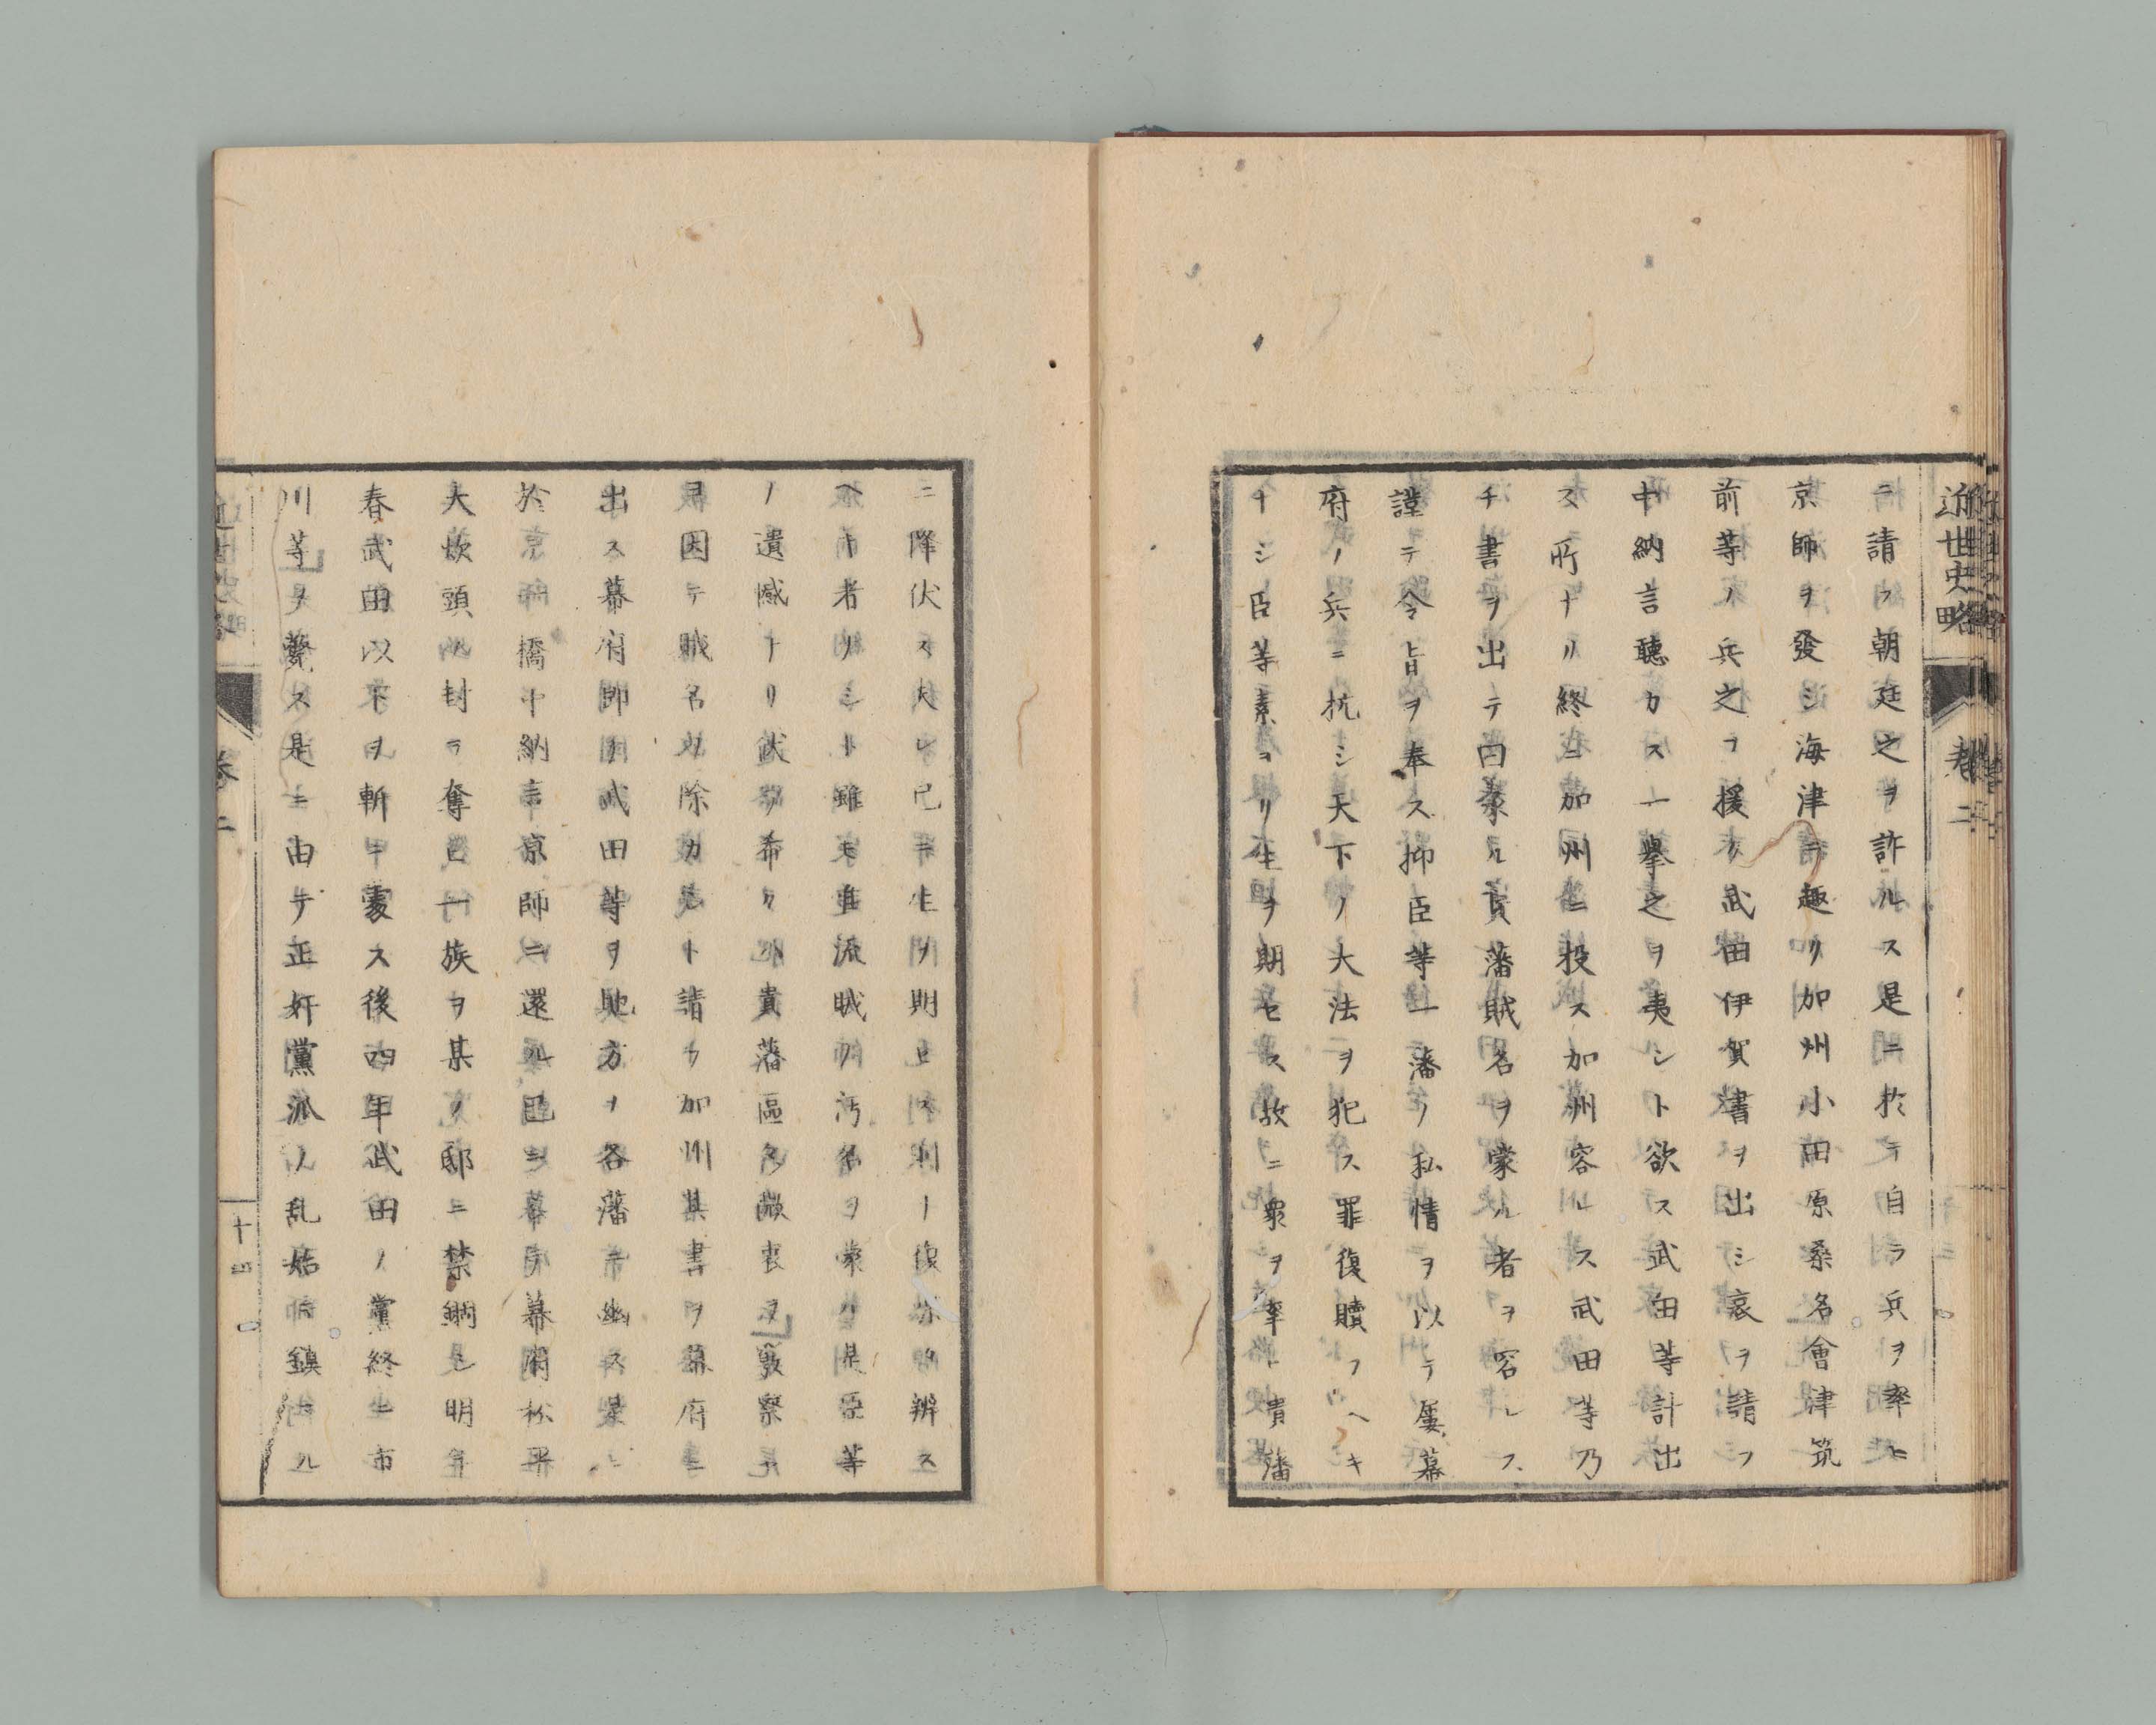 近世史略 巻二
テ請フ朝廷之ヲ許ルス是ニ於テ自ラ兵ヲ率ヒ
京師ヲ發シ海津ニ趣リ加州小田原桑名會津筑
前等ノ兵之ヲ援ク武田伊賀書ヲ出シ哀ヲ請フ
中納言聽カス一擧之ヲ夷シト欲ス武田等計出
ス所ナリ終ニ加州ニ投ス加州容ルス武田等乃
チ書ヲ出テ曰ル貴藩賊名ヲ蒙ル者ヲ容レス
謹テ令旨ヲ奉ス抑臣等一藩ノ私情ヲ以テ屡幕
府ノ兵ニ抗シ天下ノ大法ヲ犯ス罪復贖フヘキ
ナシ臣等素ヨリ生ヲ期セス故ニ衆ヲ率ヒ貴藩
ニ降伏ス夫レ已ニ生ヲ期セス則ノ復辨ス
ヘキ者ノシト雖モ流賊ノ汚名ヲ蒙ル是臣等
ノ遺憾ナリ伏シ希クハ貴藩區々微衷ヲ察
因テ賊名ヲ除カント請フ加州其書ヲ幕府ニ
出ス幕府即チ武田等ヲ地方ノ各藩ニ幽ス是ニ
於橋中納言京師ニ還ル既ニ幕府松平
大炊頭ノ封ヲ奪ヒ一族ヲ某ノ邸ニ禁錮シ明年
春武田以下ヲ斬ニ處ス後四年武田ノ黨終ニ市
川等ヲ斃ス是ニ由テ正奸黨派ノ乱始テ鎮マル
近世史略 巻二 十四